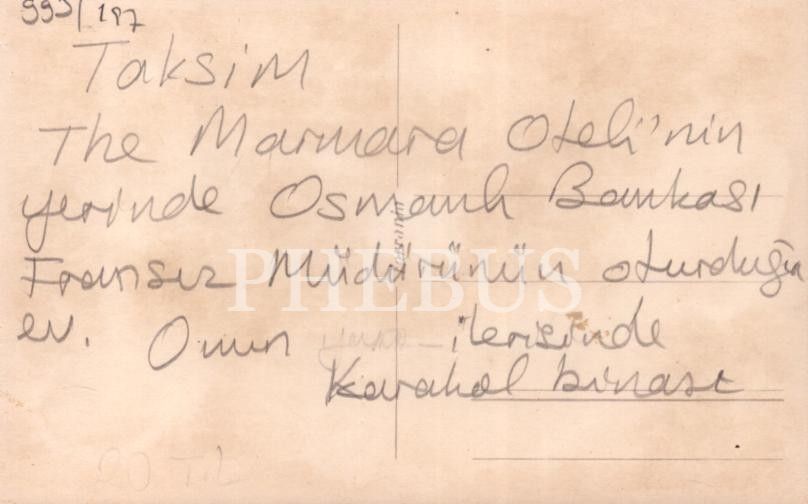 993/197
Taksim
The Marmara Oteli'nin
yerinde Osmanlı Bankası
Fransız Müdürünün oturduğu
ev. Onun ilerisinde
Karakol binası
PHEBUS